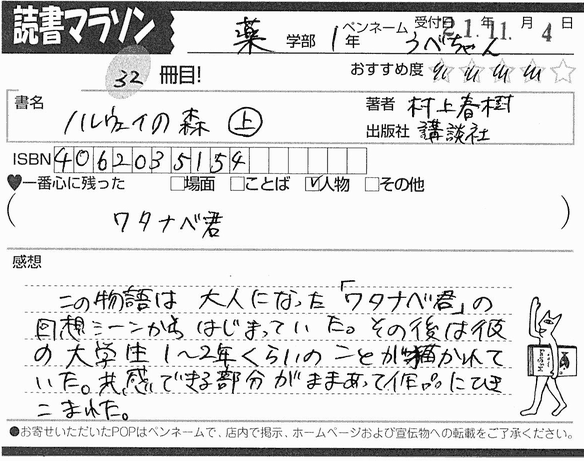 読書マラソン
薬 学部 1年 ペンネーム うべちゃん 受付日 21年 11月 4日
32 冊目! おすすめ度 ☆☆☆☆☆
書名 ノルウェイの森 上
著者 村上春樹
出版社 講談社
ISBN 4062035154
♥一番心に残った □場面 □ことば ☑人物 □その他
( ワタナベ君 )
感想
この物語は 大人になった「ワタナベ君」の
回想シーンから はじまっていた。その後は彼
の大学生 1〜2年くらいの ことが描かれて
いた。共感できる部分がままあって作品にひき
こまれた。
●お寄せいただいたPOPはペンネームで、店内で掲示、ホームページおよび宣伝物への転載をご了承ください。